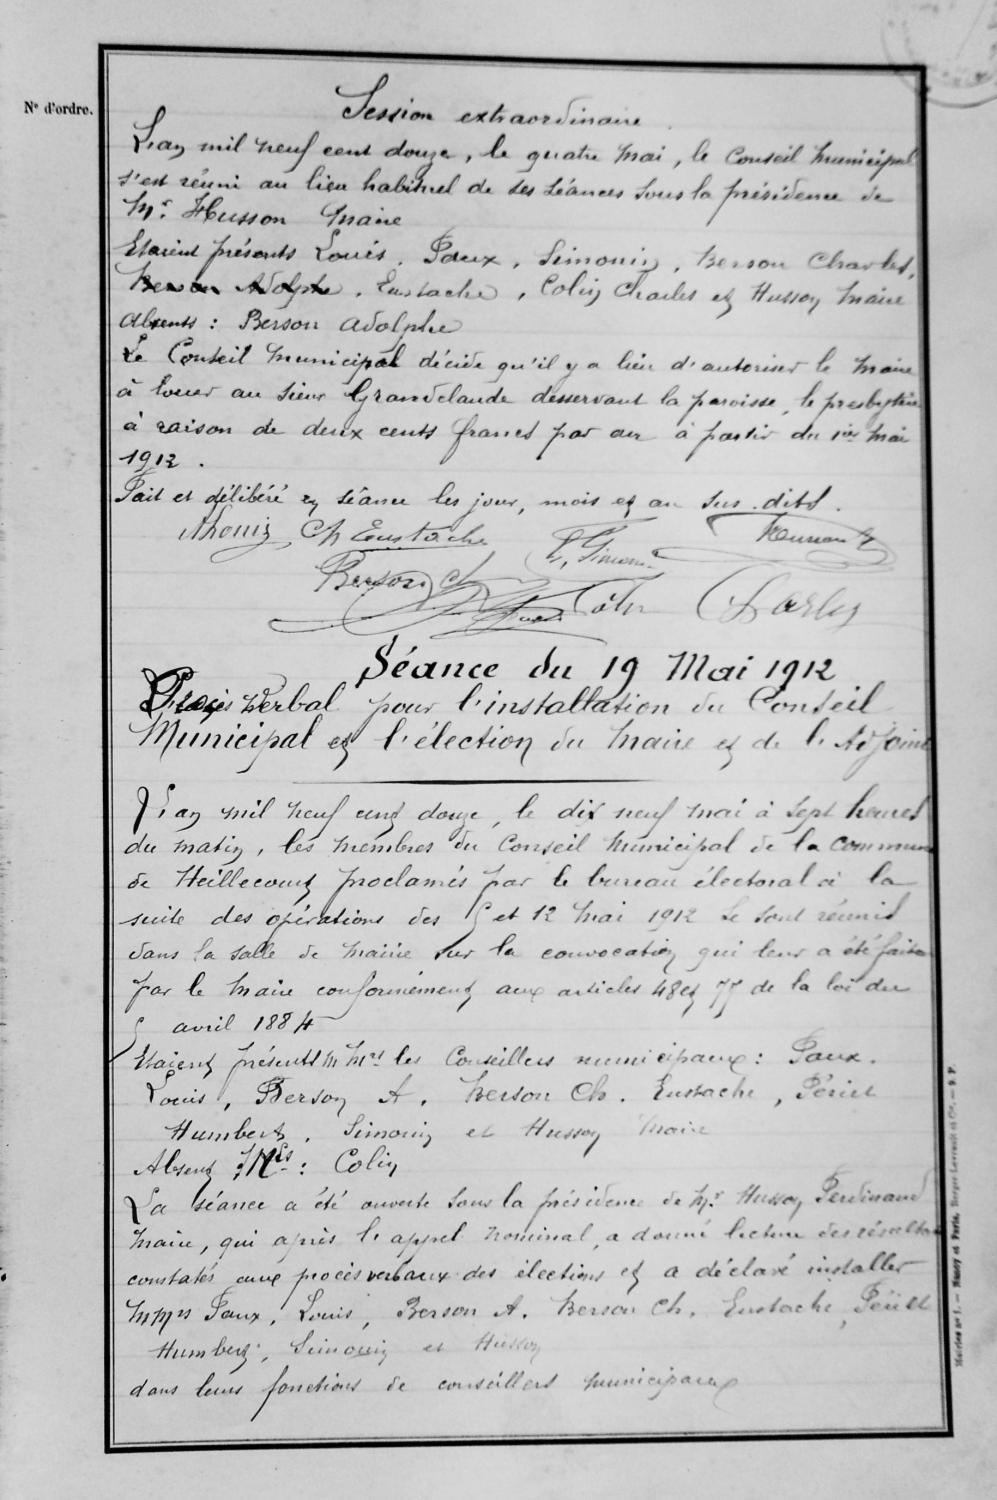 N° d'ordre.
Session extraordinaire
L'an mil neuf cent douze, le quatre mai, le Conseil Municipal
s'est réuni au lieu habituel de ses séances sous la présidence de
Mr Husson Maire
Etaient présents Louis, Paux, Simonin, Berson Charles,
Berson Adolphe, Eustache, Colin Charles et Husson Maire
Absents : Berson Adolphe
Le Conseil Municipal décide qu'il y a lieu d'autoriser le Maire
à louer au sieur Grandclaude desservant la paroisse, le presbytère
à raison de deux cents francs par an à partir du 1er Mai
1912.
Fait et délibéré en séance les jour, mois et an sus-dits.
Ch Eustache
Berson Ch
Colin Charles
Séance du 19 Mai 1912
Procès Verbal pour l'installation du Conseil
Municipal et l'élection du Maire et de l'Adjoint
L'an mil neuf cent douze, le dix neuf mai à sept heures
du matin, les membres du Conseil Municipal de la commune
de Heillecourt proclamés par le bureau électoral à la
suite des opérations des 5 et 12 Mai 1912 se sont réunis
dans la salle de Mairie sur la convocation qui leur a été faite
par le Maire conformément aux articles 48 et 77 de la loi du
5 avril 1884
Etaient présents M Mrs les Conseillers municipaux : Paux.
Louis, Berson A. Berson Ch. Eustache, Périet
Humbert, Simonin et Husson Maire
Absent Mrs : Colin
La séance a été ouverte sous la présidence de Mr Husson Ferdinand
Maire, qui après l'appel nominal, a donné lecture des résultats
constatés aux procès verbaux des élections et a déclaré installer
MMrs Paux, Louis, Berson A. Berson Ch. Eustache, Périet
Humbert, Simonin et Husson
dans leurs fonctions de conseillers municipaux
Mairies n° 1. — Nancy et Paris, Berger-Levrault et Cie. — S. P.